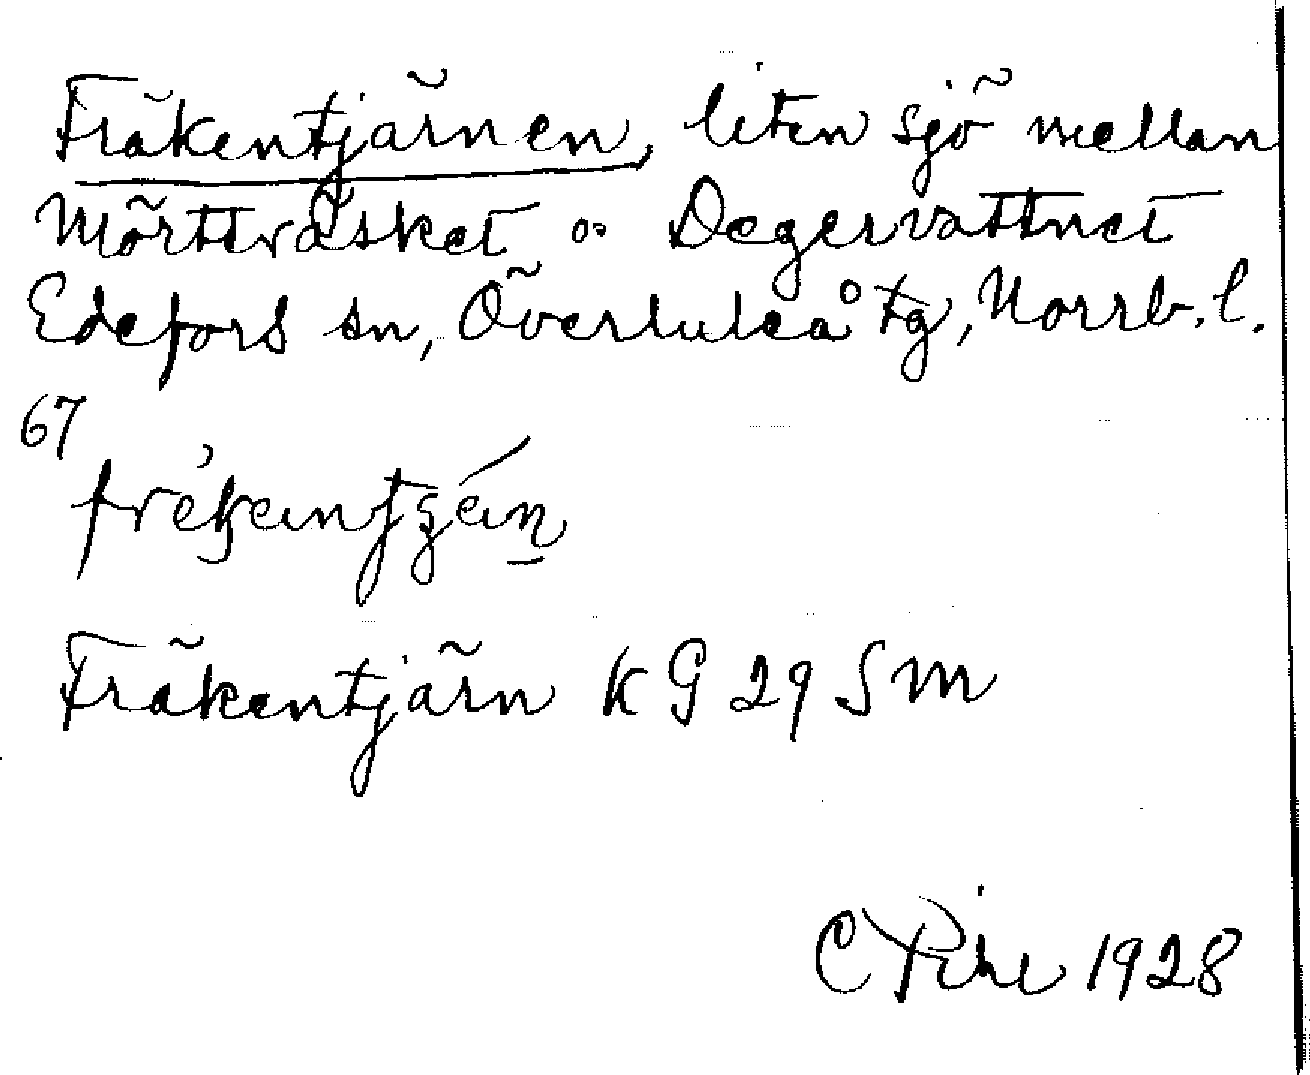 Fräkentjärnen, liten sjö mellan
Mörtträsket o. Degervattnet
Edefors sn, Överluleå tg, Norrb. l.
67
Fräkentjärn K G 29 S M
C Pihl 1928